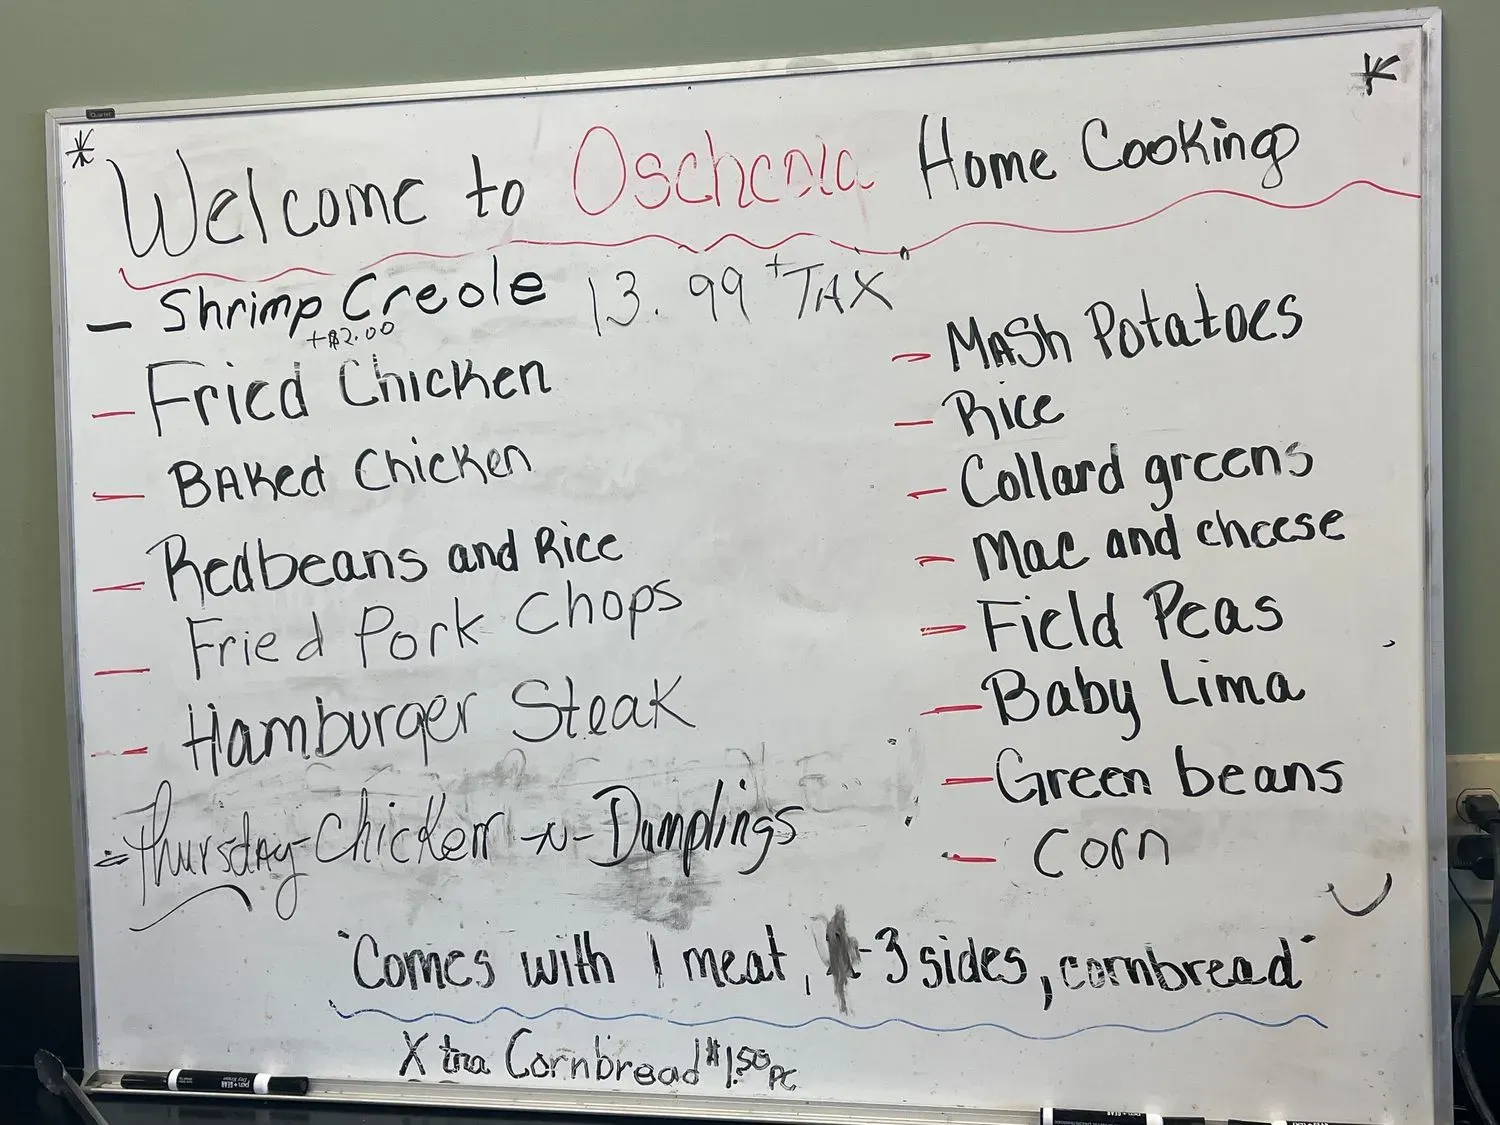 Quartet
Welcome to Oscheola Home Cooking
- Shrimp Creole 13.99 + TAX"
+$2.00
- Fried Chicken
- BAKed Chicken
- Redbeans and Rice
- Fried Pork Chops
- Hamburger Steak
- Thursday-Chicken -N- Dumplings
- MASh Potatoes
- Rice
- Collard greens
- Mac and cheese
- Field Peas
- Baby Lima
- Green beans
- Corn
"Comes with 1 meat, 3 sides, cornbread"
Xtra Cornbread $1.50 PC